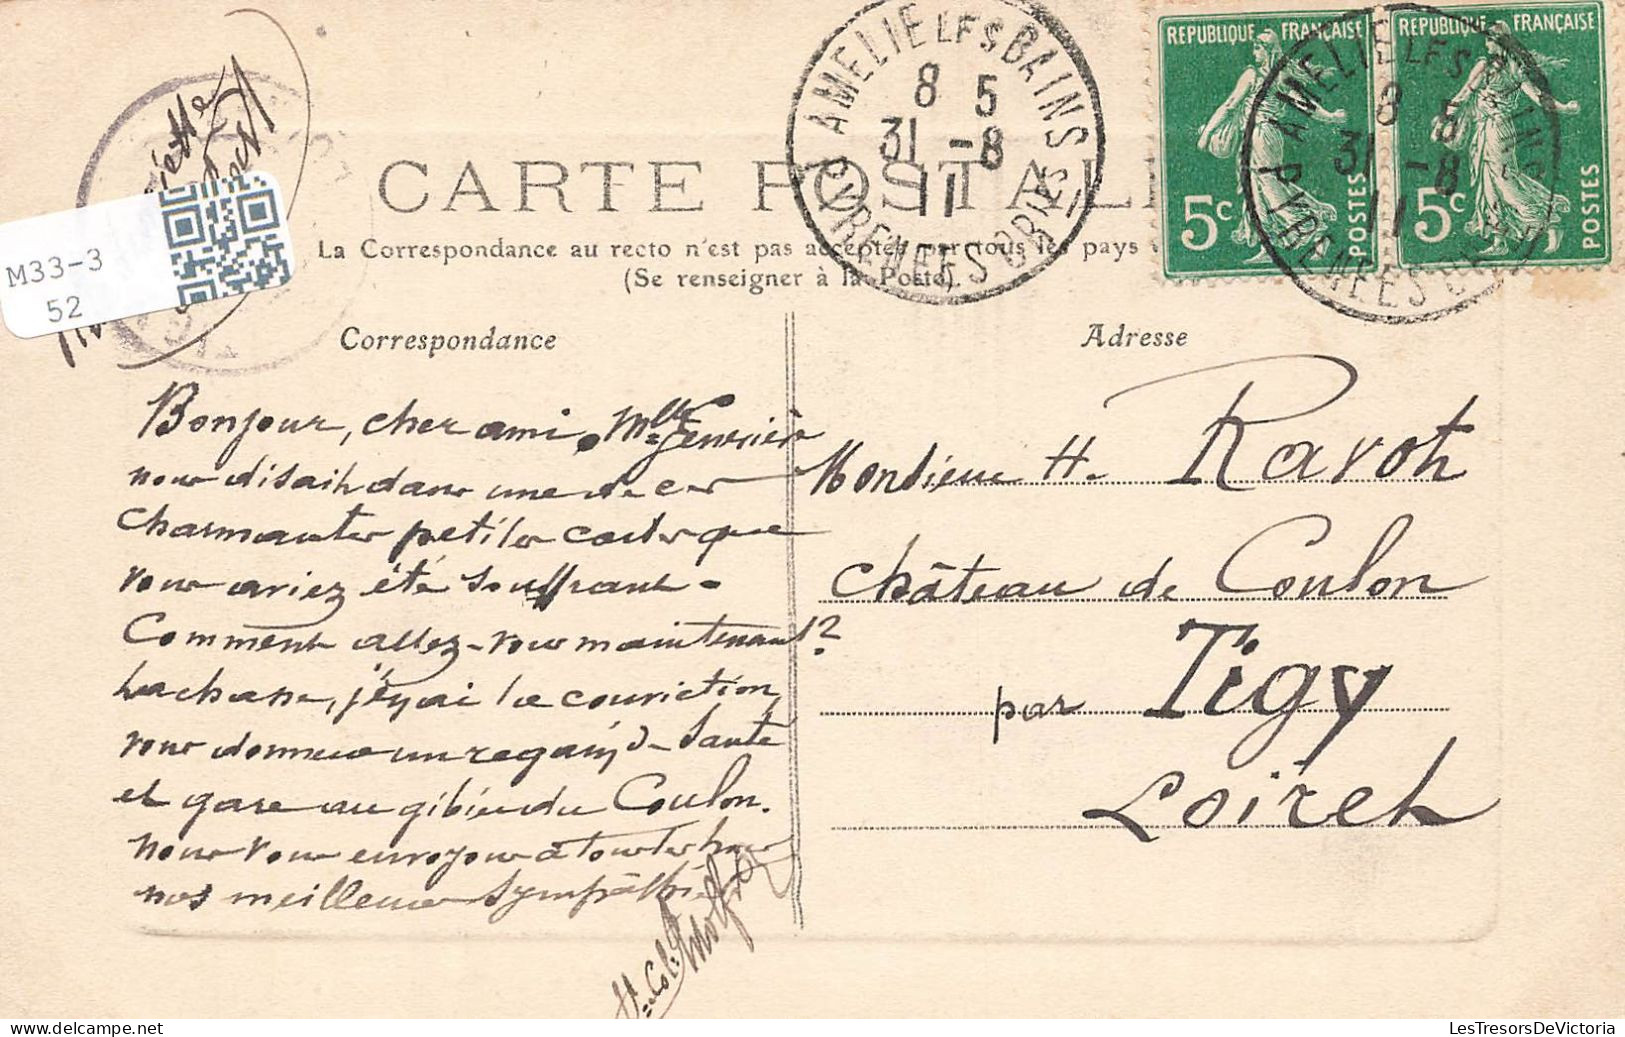 REPUBLIQUE FRANÇAISE
REPUBLIQUE FRANÇAISE
5c POSTES
5c POSTES
AMELIE LES BAINS
8 5
31 -8
11
PYRENEES ORIES
AMELIE LES BAINS
8 5
31 -8
11
PYRENEES ORIES
CARTE POSTALE
La Correspondance au recto n'est pas acceptée par tous les pays
(Se renseigner à la Poste).
M33-3
52
Correspondance
Adresse
Bonjour, cher ami. Mlle
nous disait dans une de ces
charmantes petites cartes que
vous aviez été souffrant.
Comment allez-vous maintenant?
La chasse, j'en ai la conviction,
vous donnera un regain de santé
et gare au gibier du Coulon.
Nous vous envoyons à toutes
nos meilleures sympathies
Monsieur H. Ravot
château de Coulon
par Tigy
Loiret
LesTresorsDeVictoria
www.delcampe.net